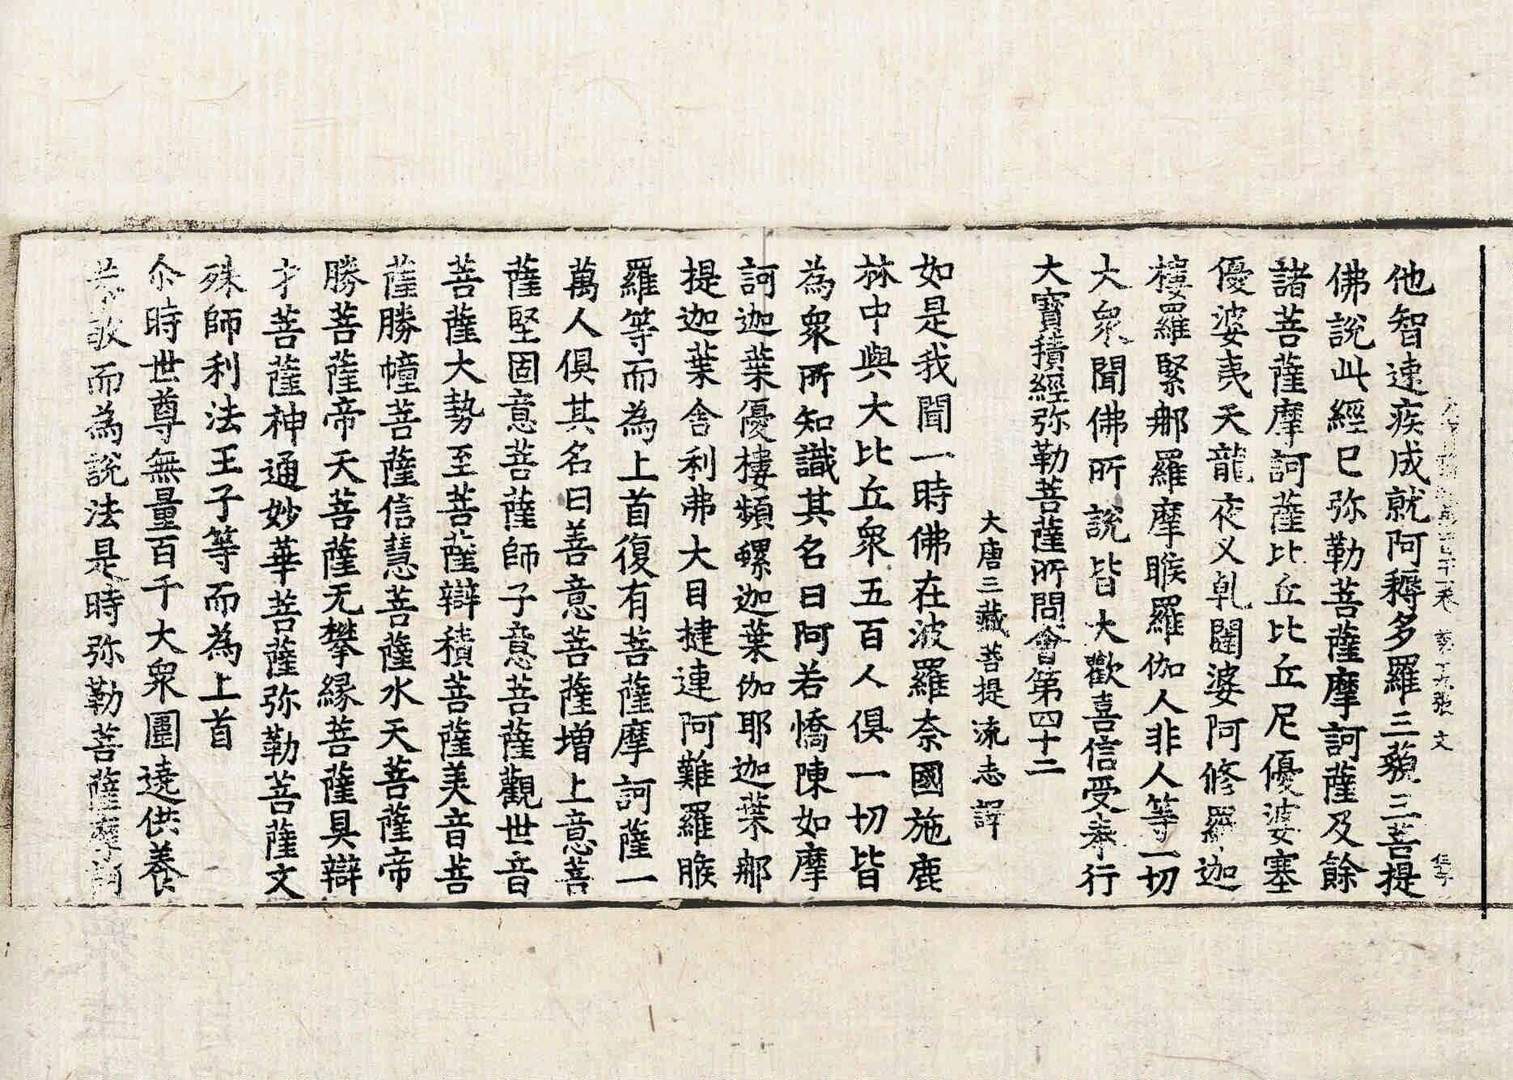 卷 第十九張 文
他智速疾成就阿耨多羅三藐三菩提
佛說此經已弥勒菩薩摩訶薩及餘
諸菩薩摩訶薩比丘比丘尼優婆塞
優婆夷天龍夜叉乹闥婆阿修羅迦
樓羅緊那羅摩睺羅伽人非人等一切
大衆聞佛所說皆大歡喜信受奉行
大寶積經弥勒菩薩所問會第四十二
大唐三藏菩提流志譯
如是我聞一時佛在波羅奈國施鹿
林中與大比丘衆五百人俱一切皆
為衆所知識其名曰阿若憍陳如摩
訶迦葉優樓頻螺迦葉伽耶迦葉那
提迦葉舍利弗大目揵連阿難羅睺
羅等而為上首復有菩薩摩訶薩一
萬人俱其名曰善意菩薩增上意菩
薩堅固意菩薩師子意菩薩觀世音
菩薩大勢至菩薩辯積菩薩美音菩
薩勝幢菩薩信慧菩薩水天菩薩帝
勝菩薩帝天菩薩无攀緣菩薩具辯
才菩薩神通妙華菩薩弥勒菩薩文
殊師利法王子等而為上首
尒時世尊無量百千大衆圍遶供養
恭敬而為說法是時弥勒菩薩摩訶